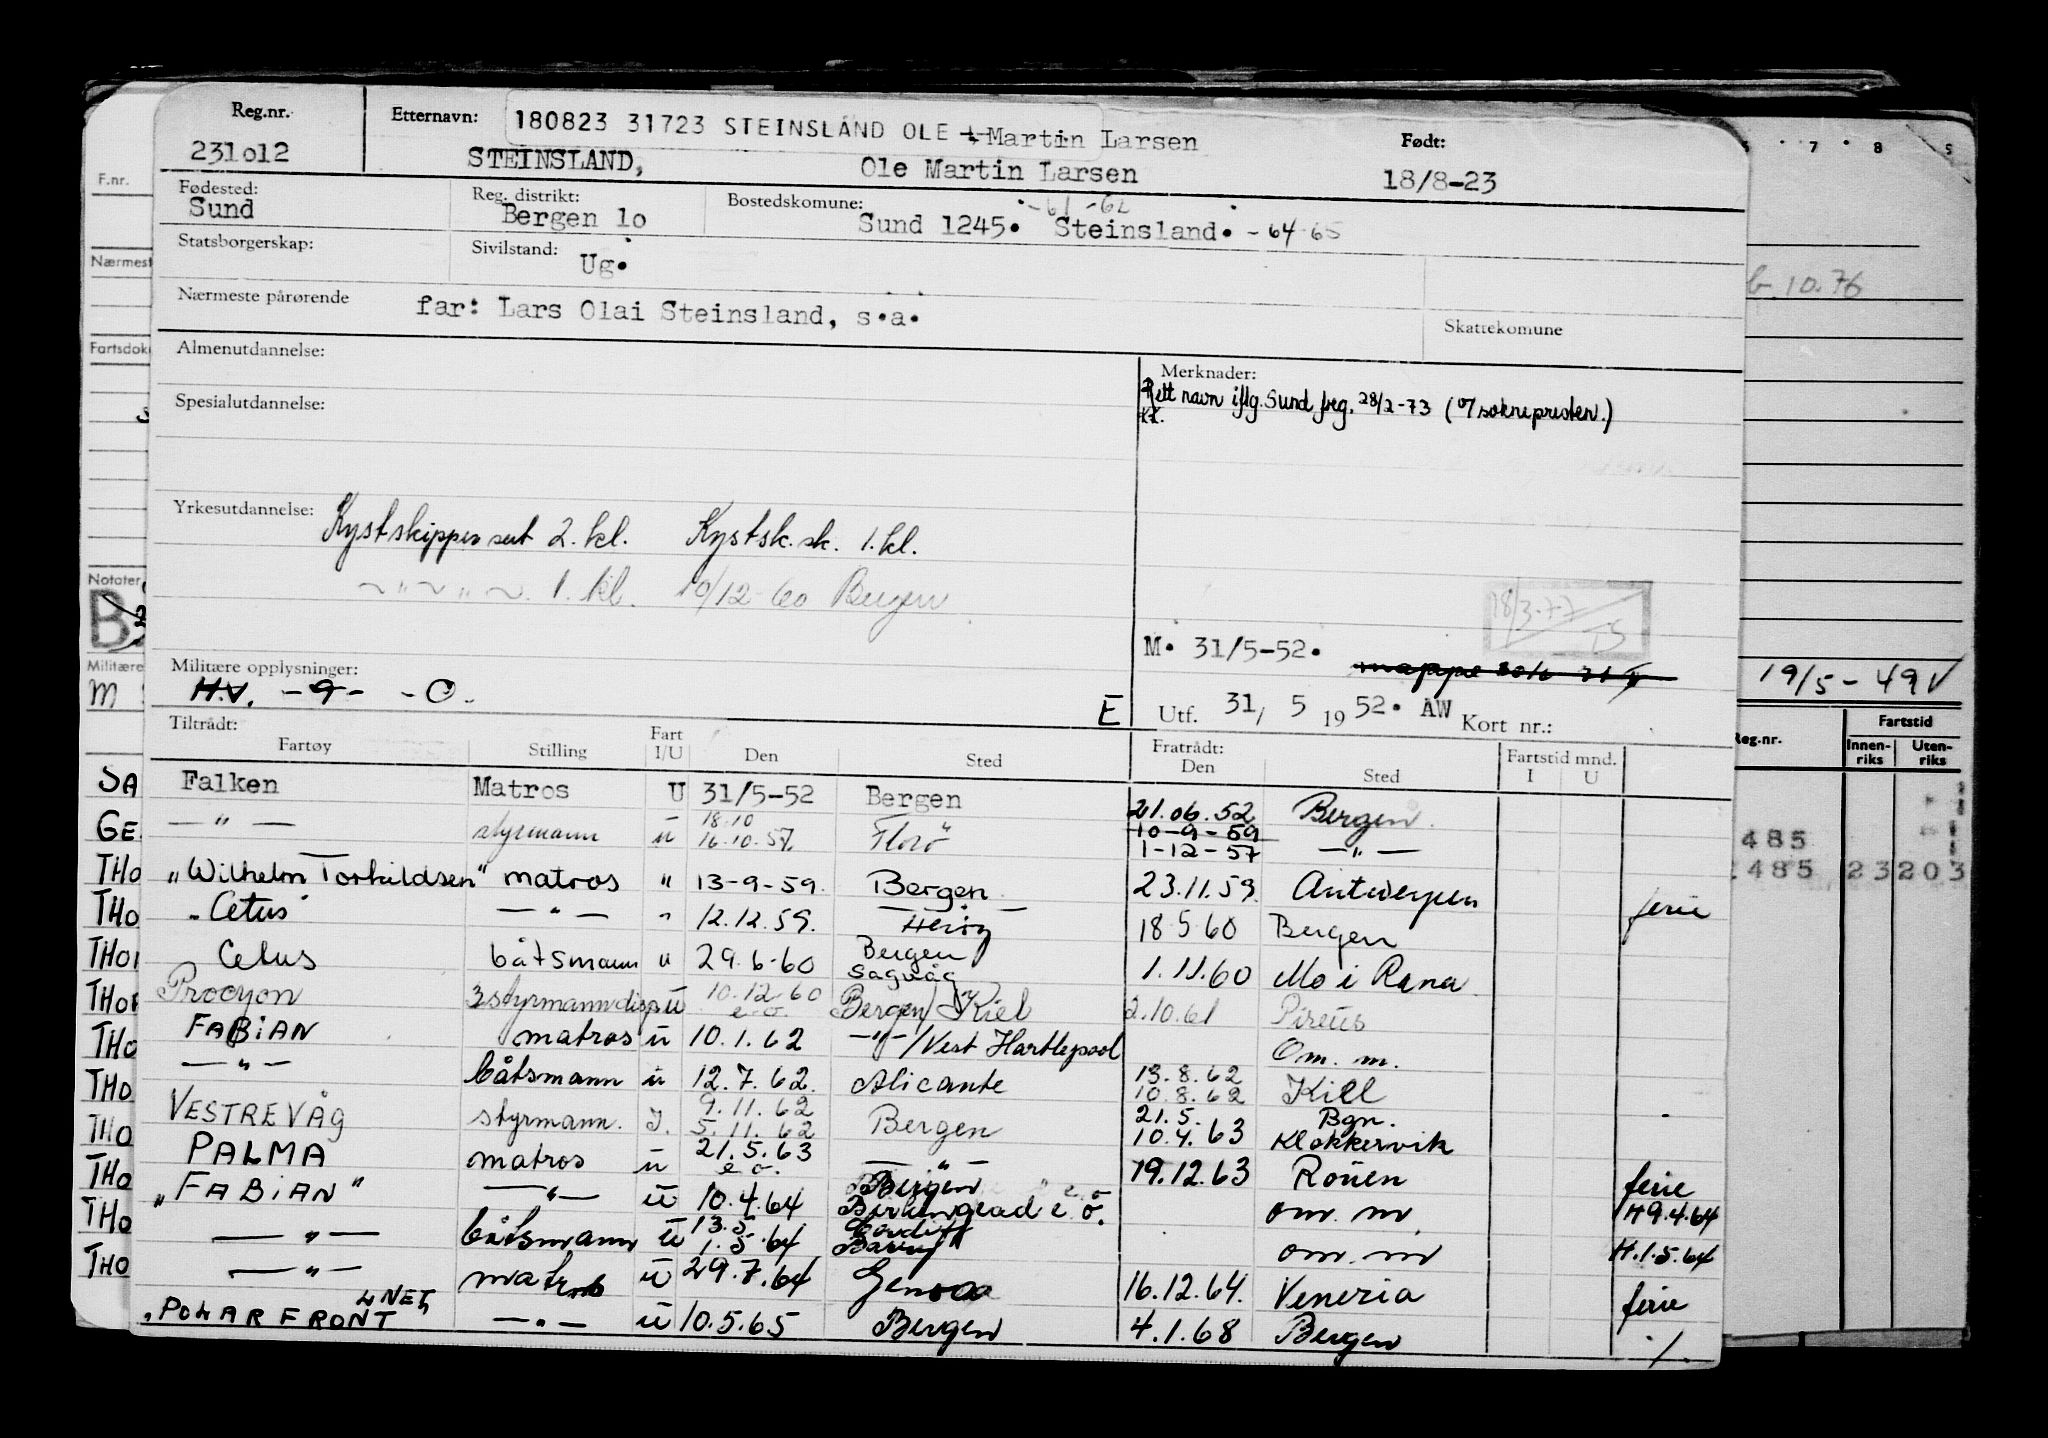 Reg.nr. Etternavn: 180823 31723 STEINSLAND OLE Martin Larsen Født:
231o12 STEINSLAND, Ole Martin Larsen 18/8-23
Fødested: Sund Reg. distrikt: Bergen 1o Bostedskomune: Sund 1245. Steinsland. -61 -62 -64-65
Statsborgerskap: Sivilstand: Ug.
Nærmeste pårørende far: Lars Olai Steinsland, s.a. Skattekomune
Almenutdannelse: Merknader:
Rett navn iflg. Sund freg. 28/2-73 (v/soknepresten.)
Spesialutdannelse:
Yrkesutdannelse: Kystskippersert 2. kl. Kystsk.sk. 1. kl.
1. kl. 10/12-60 Bergen
18/3-77 TS
M. 31/5-52.
Militære opplysninger: H.V. -9- -O- E
Utf. 31/ 5 1952. AW Kort nr.:
Tiltrådt: Fartøy Stilling Fart I/U Den Sted Fratrådt: Den Sted Fartstid mnd. I U
Falken Matros U 31/5-52 Bergen 21.06.52 Bergen
— " — styrmann u 18.10 16.10.57. Florø 10-9-59 1-12-57 — " —
"Wilhelm Torkildsen" matros " 13-9-59. Bergen 23.11.59 Antwerpen ferie
"Cetus" — " — " 12.12.59. Herøy 18 5 60 Bergen
Cetus båtsmann u 29.6-60 Bergen Sagvåg 1.11.60 Mo i Rana
Procyon 3styrmann disp u 10.12.60 e.o. Bergen/Kiel 2.10.61 Pireus
FABiAN matros u 10.1.62 — " — /Vest Hartlepool Om. m.
— " — båtsmann u 12.7.62. Alicante 13.8.62 10.8.62 Kiel
VESTREVÅG styrmann. I. 9.11.62 5.11.62 Bergen 21.5. 10.4.63 Bgn. Klokkervik
PALMA matros u 21.5.63 e o. — " — 19.12.63 Rouen ferie
"FABiAN" — " — u 10.4.64 Bergen e.o. om. m H 9.4.64
— " — båtsmann u 13.5 1.5.64 om. m H.1.5.64
— " — matros u 29.7.64 Genoa 16.12.64. Venezia ferie
"POLARFRONT — " — u 10.5.65 Bergen 4.1.68 Bergen ./.
F.nr.
Nærmest
Fartsdok
Notater
Militære
M
SA
GE
THO
THO
THO
THO
THO
THO
THO
THO
THO
THO
7 8
10.76
19/5-49
Reg.nr. Fartstid
Innen-riks Uten-riks
485
485 23 203